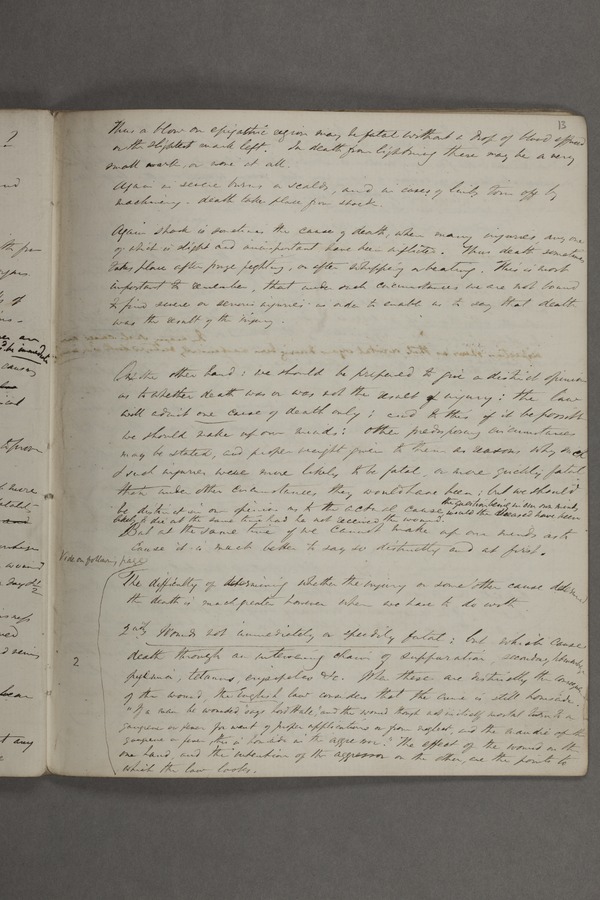 13
Thus a blow on epigastric region may be fatal without a drop of blood effused
or the slightest mark left. In death from lightning there may be a very
small mark, or none at all.
Again in severe burns or scalds, and in cases of limbs torn off by
machinery. death takes place from shock.
Again shock is sometimes the cause of death, when many injuries, any one
of which is slight and unimportant have been inflicted. Thus death sometimes
takes place after prize fighting, or after whipping or beating. This is most
important to remember, that under such circumstances we are not bound
to find severe or serious injuries in order to enable us to say that death
was the result of the injury.
On the other hand: we should be prepared to give a distinct opinion
as to whether death was or was not the result of injury: the law
will admit one cause of death only; and to this if it be possible
we should make up our minds: other predisposing circumstances
may be stated, and proper weight given to them as reasons why such
& such injuries were more likely to be fatal, or more quickly fatal
than under other circumstances they would have been; but we should
be distinct in our opinion as to the actual cause, the question being in our own minds would the deceased have been
likely to die at the same time had he not received the wound.
But at the same time if we cannot make up our minds as to
cause it is much better to say so distinctly and at first.
Vide on following page
The difficulty of determining whether the injury or some other cause determined
the death is much greater however when we have to do with
2ndly Wounds not immediately or speedily fatal: but which cause
2
death through an intervening chain of suppuration, secondary hemorrhage,
pyaemia, tetanus, erysipelas &c. When these are distinctly the consequence
of the wound, the English law considers that the crime is still homicide.
"If a man be wounded says Lord Hale, and the wound though not in itself mortal turns to a
gangrene or fever for want of proper applications or from neglect, and the man die of the
gangrene or fever, this is homicide in the aggressor." The effect of the wound on the
one hand, and the intention of the aggressor on the other, are the points to
which the law looks.